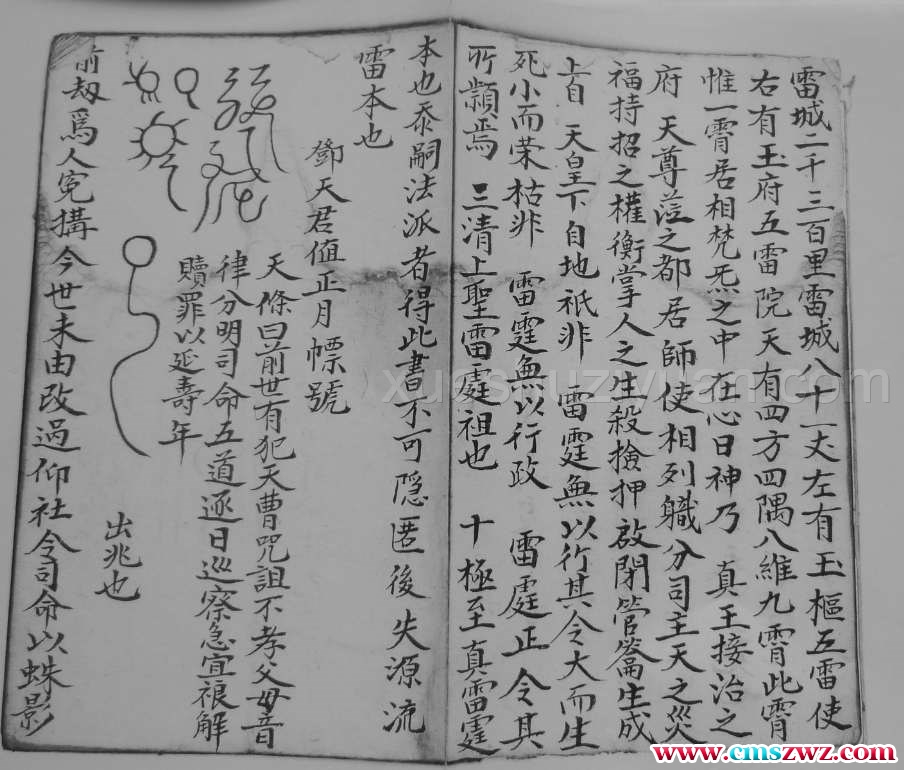 雷城二千三百里雷城八十一丈左有玉樞五雷使
右有王府五雷院天有四方四隅八維九霄此霄
惟一霄居相梵炁之中在心曰神乃 真王接治之
府 天尊蒞之都居師使相列職分司主天之災
福持招之權衡掌人之生殺撿押啟閉管籥生成
上自 天皇下自地祇非 雷霆無以行其令大而生
死小而荣枯非 雷霆無以行政 雷霆正令其
所纇焉 三清上聖雷霆祖也 十極至真雷霆
本也忝嗣法派者得此書不可隱匿後失源流
雷本也
鄧天君值正月幖號
天條曰前世有犯天曹咒詛不孝父母音
律分明司命五道逐日巡察急宜禳解
贖罪以延壽年
出兆也
前刼爲人寃搆今世未由改過仰社令司命以蛛影
xueshuziyuan.com
www.cmszwz.com